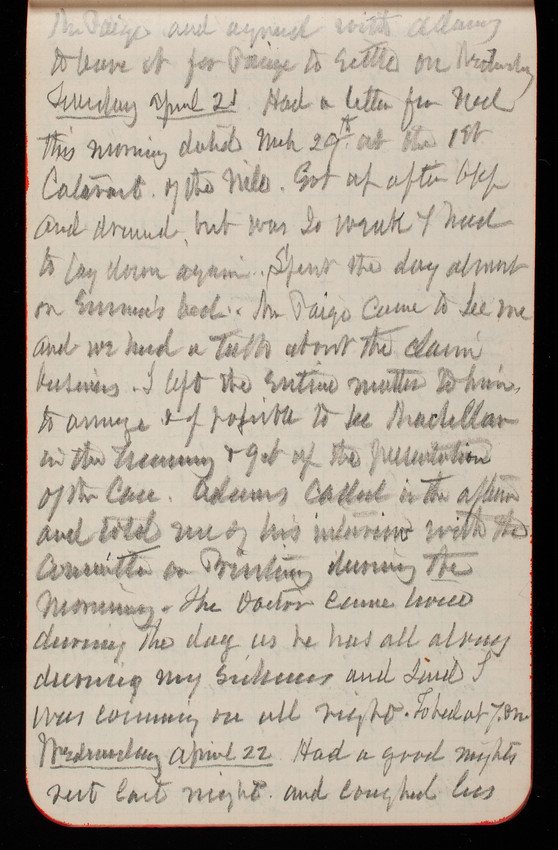 Mr Paige and agreed with Adams
to leave it for Paige to settle on
Tuesday April 21 Had a letter from Ned
this morning dated Mch 29th at the 1st
Cataract of the Nile. Got up after bkf
and dressed but was so weak I had
to lay down again. Spent the day almost
on Emma's bed. Mr Paige came to see me
and we had a talk about the claim
business. I left the entire matter to him
to arrange & if possible to see MacLellan
in the Treasury & get up the presentation
of the Case. Adams called in the aftern
and told me of his interview with the
Committee on Printing during the
morning. The Doctor came twice
during the day as he has all along
during my sickness and said I
was coming on all right. To bed at 7.
Wednesday April 22 Had a good nights
rest last night and coughed less